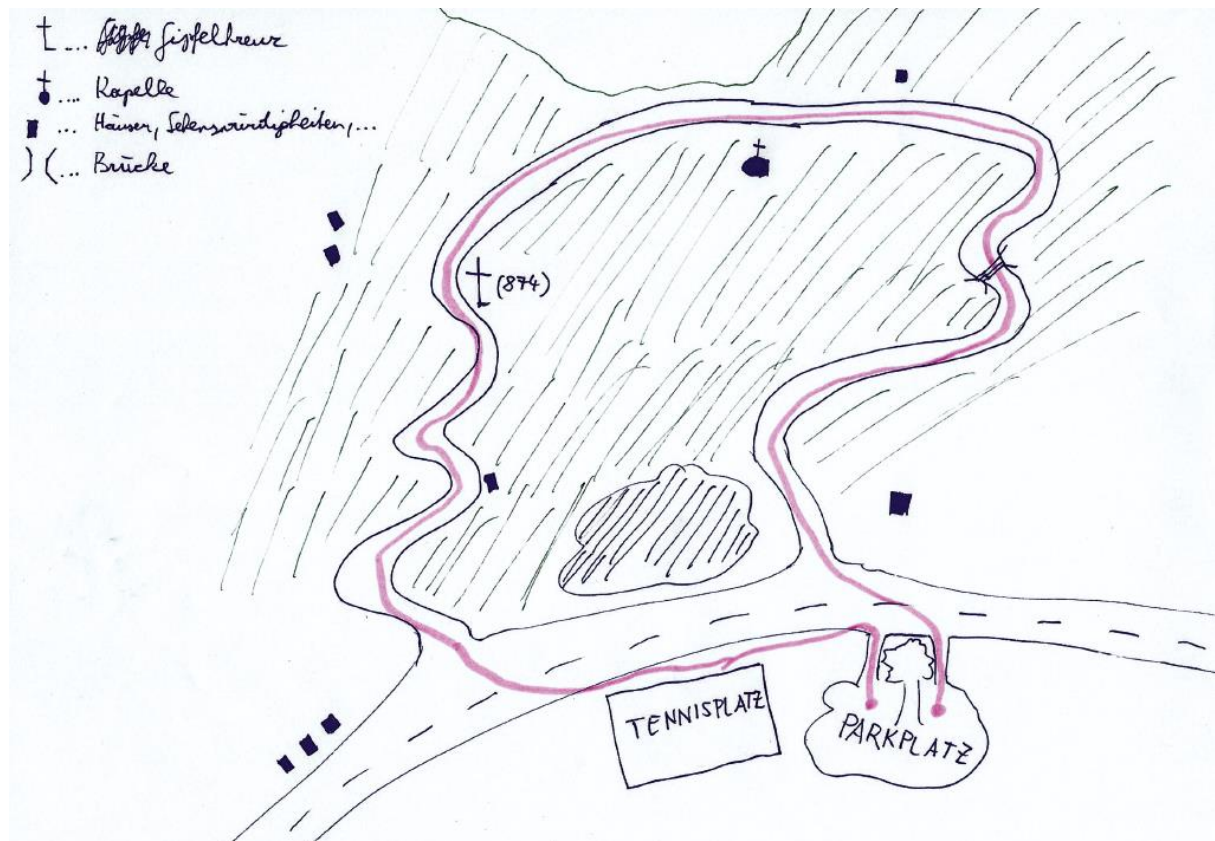 ... Gipfelkreuz
... Kapelle
... Häuser, Sehenswürdigkeiten,...
) (... Brücke
(874)
TENNISPLATZ
PARKPLATZ